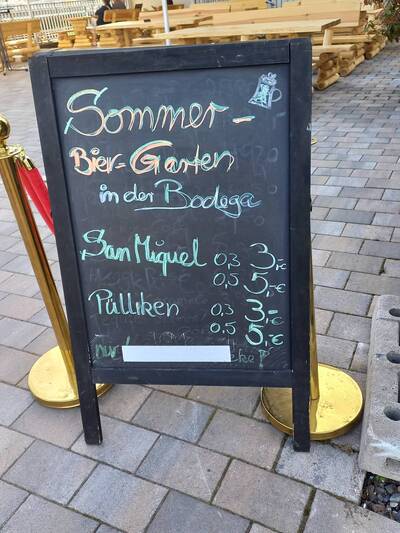 Sommer-
Bier-Garten
in der Bodega
San Miquel 0,3 3,-€
0,5 5,-€
Pülliken 0,3 3,-
0,5 5,-€
nur